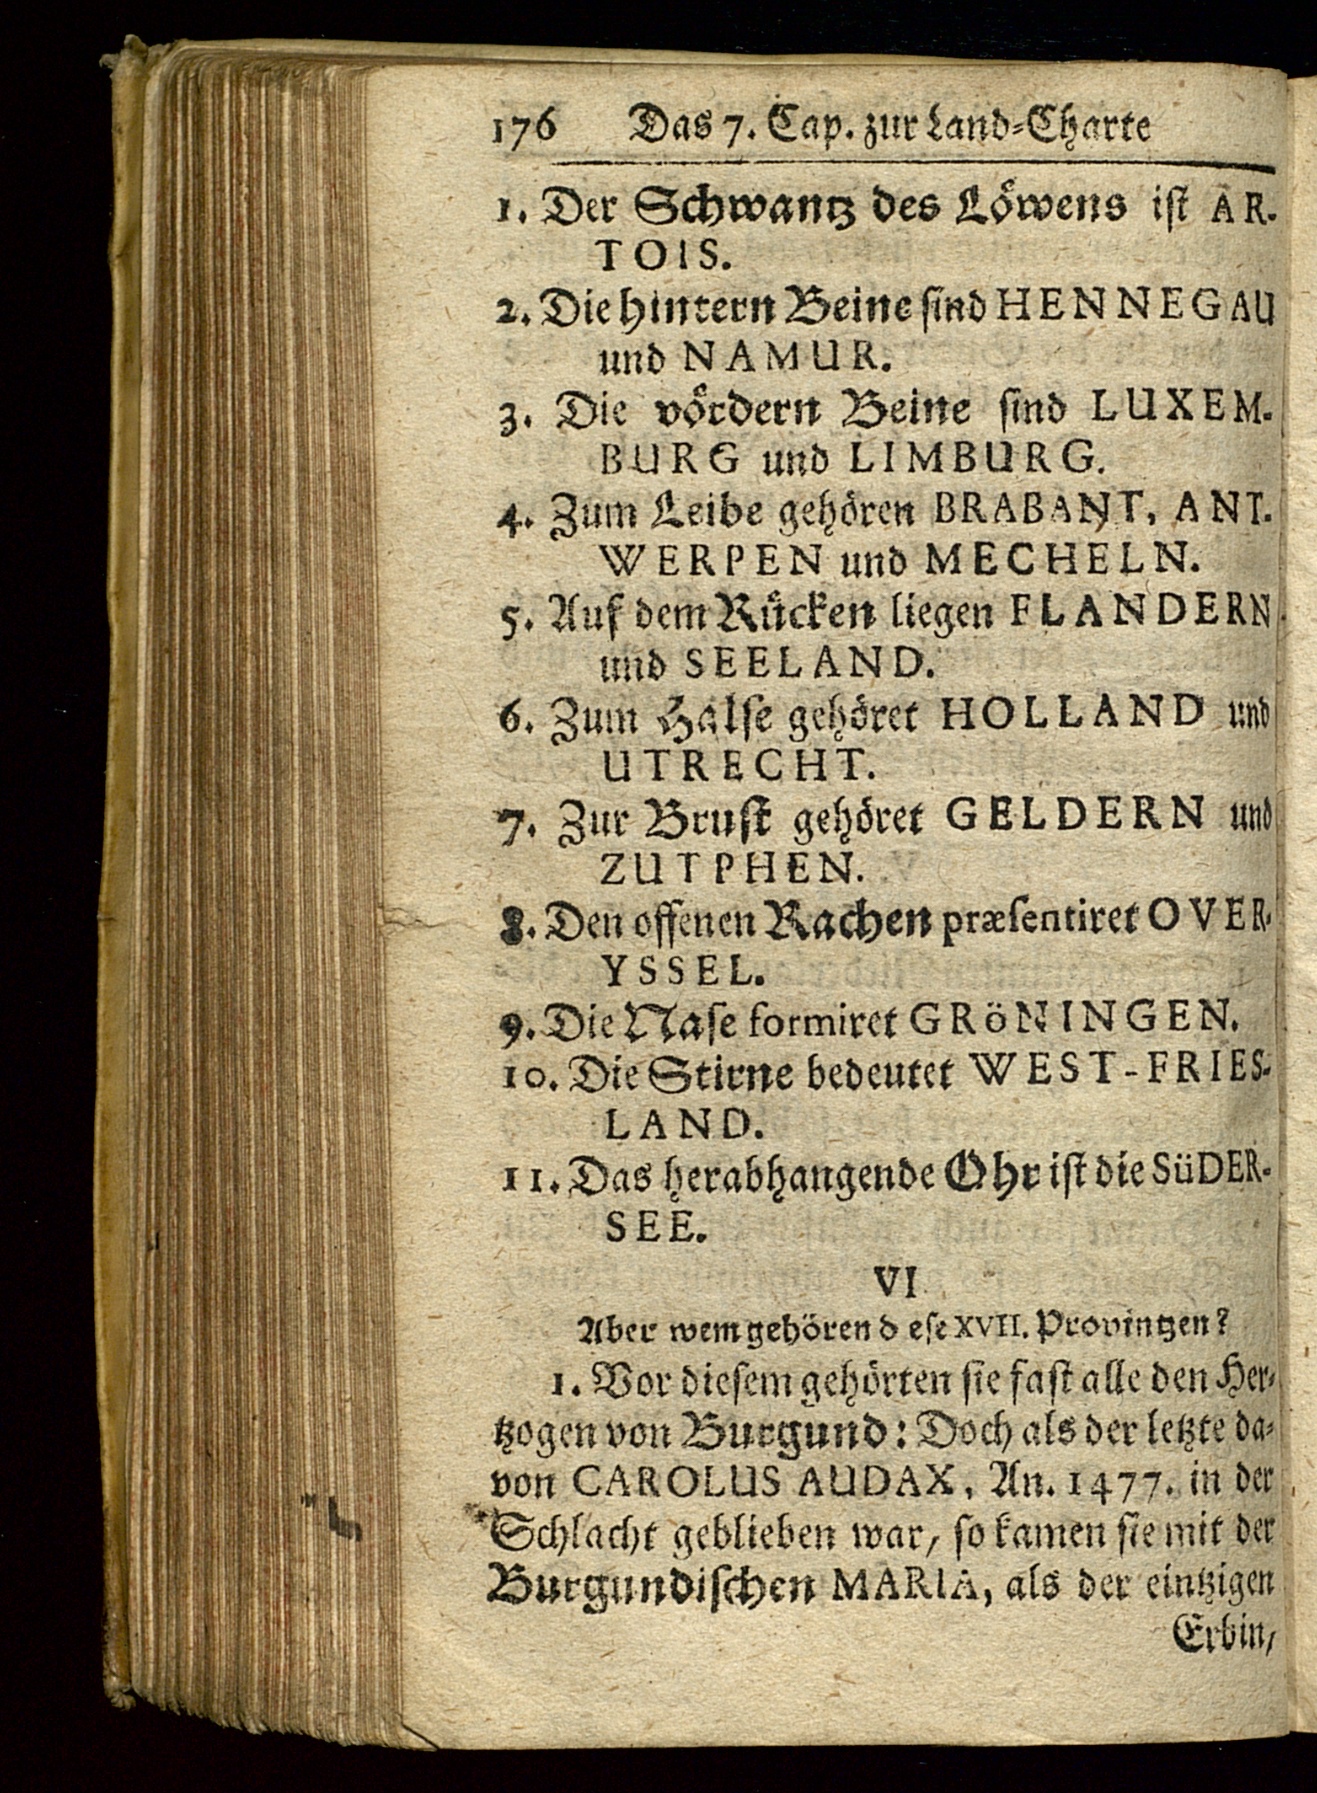 176 Das 7. Cap. zur Land-Charte
1. Der Schwantz des Löwens ist AR-
TOIS.
2. Die hintern Beine sind HENNEGAU
und NAMUR.
3. Die vördern Beine sind LUXEM-
BURG und LIMBURG.
4. Zum Leibe gehören BRABANT, ANT-
WERPEN und MECHELN.
5. Auf dem Rücken liegen FLANDERN
und SEELAND.
6. Zum Halse gehöret HOLLAND und
UTRECHT.
7. Zur Brust gehöret GELDERN und
ZUTPHEN.
8. Den offenen Rachen præsentiret OVER-
YSSEL.
9. Die Nase formiret GRöNINGEN.
10. Die Stirne bedeutet WEST-FRIES-
LAND.
11. Das herabhangende Ohr ist die SüDER-
SEE.
VI
Aber wem gehören d ese XVII. Provintzen?
1. Vor diesem gehörten sie fast alle den Her-
tzogen von Burgund: Doch als der letzte da-
von CAROLUS AUDAX, An. 1477. in der
Schlacht geblieben war, so kamen sie mit der
Burgundischen MARIA, als der eintzigen
Erbin,